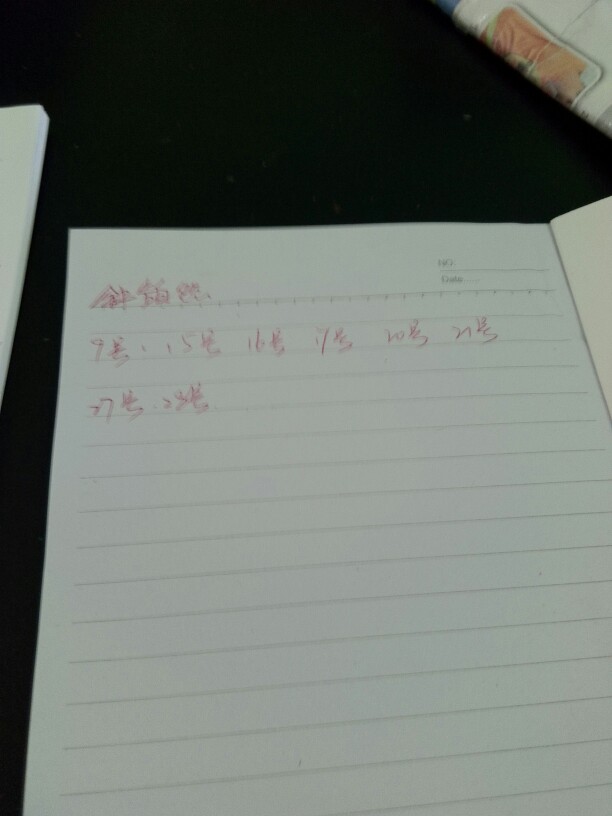 NO.
Date
9号、15号 16号 17号 20号 21号
27号、28号